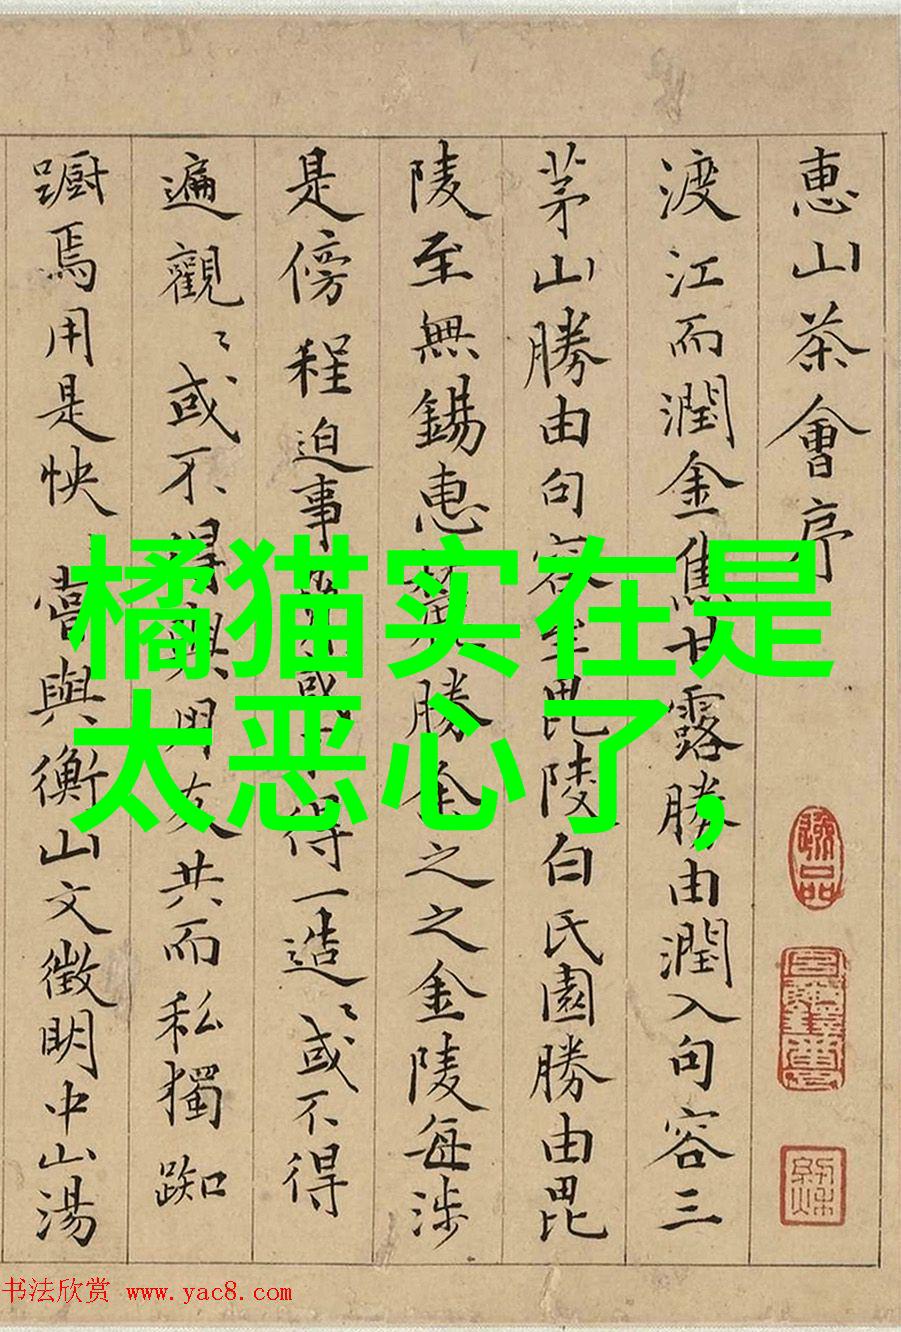 恵山茶會序
渡江而潤金焦甘露勝由潤入句容三
茅山勝由句容至毘陵白氏園勝由毘
陵至無錫恵麓勝全之之金陵每涉
是傍程迫事或不得一造〻或不得
遍觀〻或不得與朋友共而私獨踟
蹰焉用是怏〻嘗與衡山文徵明中山湯
橘猫实在是
太恶心了，
书法欣赏 www.yac8.com